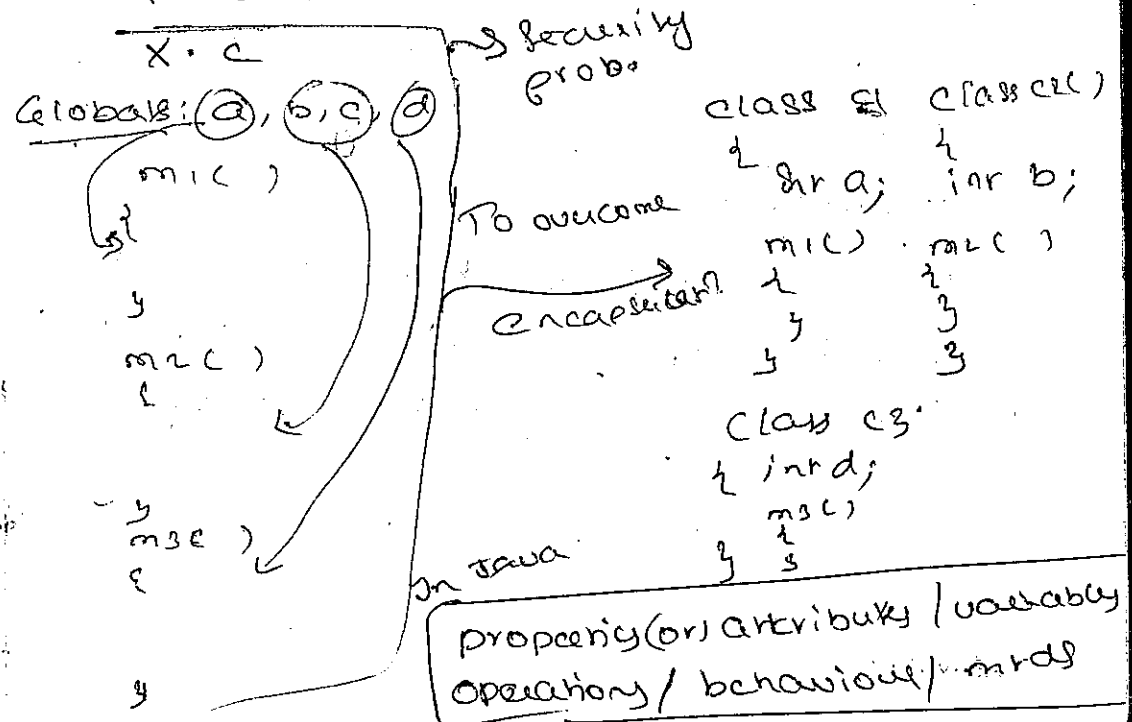 X.c
Globals: a, b, c, d
m1( )
{
}
m2( )
{
}
m3( )
{
}
→ Security
prob.
To overcome
encapsulatn
class c1
{
int a;
m1()
{
}
}
class c2()
{
int b;
m2( )
{
}
}
Class c3.
{ int d;
m3()
{
}
}
In Java
properties(or) attributes / variables
operations / behaviour / mtds